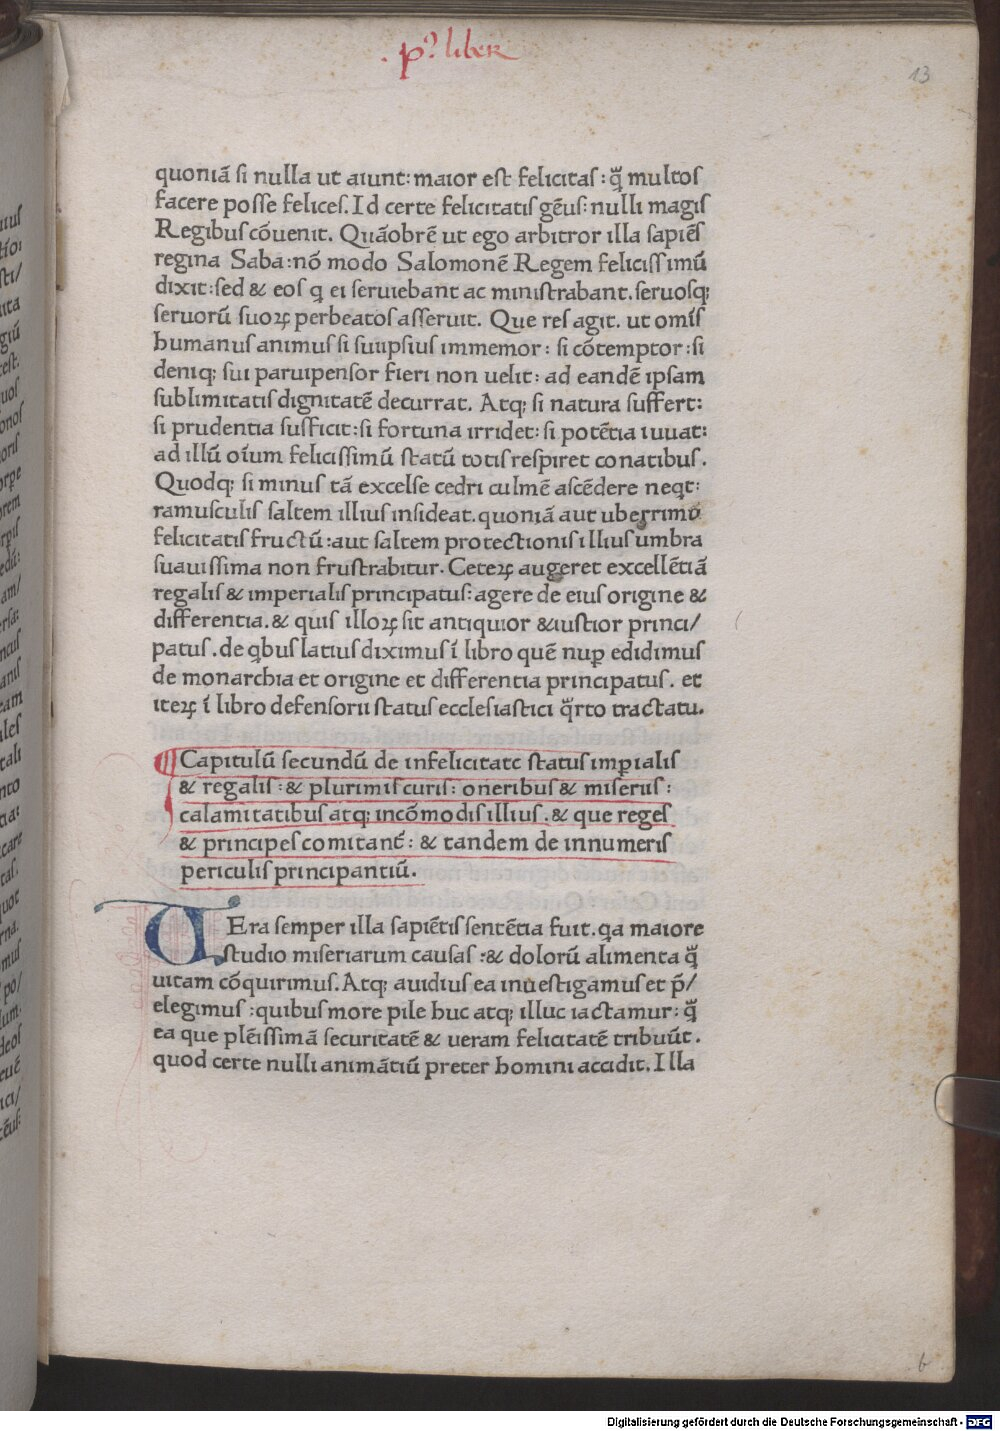 . pº. liber
13
quoniã ſi nulla ut aiunt: maior eſt felicitaſ: q̃ multoſ
facere poſſe feliceſ. Id certe felicitatiſ gẽuſ: nulli magiſ
Regibuſ cõuenit. Quãobrẽ ut ego arbitror illa ſapiẽſ
regina Saba: nõ modo Salomonẽ Regem feliciſſimũ
dixit: ſed & eoſ q ei ſeruiebant ac miniſtrabant. ſeruoſq;
ſeruorũ ſuoꝝ perbeatoſ aſſeruit. Que reſ agit. ut omĩſ
humanuſ animuſ ſi ſuiipſiuſ immemor: ſi cõtemptor: ſi
deniq; ſui paruipenſor fieri non uelit: ad eandẽ ipſam
ſublimitatiſ dignitatẽ decurrat. Atq; ſi natura ſuffert:
ſi prudentia ſufficit: ſi fortuna irridet: ſi potẽtia iuuat:
ad illũ oĩum feliciſſimũ ſtatũ totiſ reſpiret conatibuſ.
Quodq; ſi minuſ tã excelſe cedri culmẽ aſcẽdere neqt:
ramuſculiſ ſaltem illiuſ inſideat. quoniã aut uberrimo
felicitatiſ fructũ: aut ſaltem protectioniſ illiuſ umbra
ſuauiſſima non fruſtrabitur. Ceteꝝ augeret excellẽtiã
regaliſ & imperialiſ principatuſ: agere de eiuſ origine &
differentia. & quiſ illoꝝ ſit antiquior & iuſtior princi/
patuſ. de qbuſ latiuſ diximuſ ĩ libro quẽ nuꝑ edidimuſ
de monarchia et origine et differentia principatuſ. et
iteꝝ ĩ libro defenſorii ſtatuſ eccleſiaſtici q̃rto tractatu.
¶ Capitulũ ſecundũ de infelicitate ſtatuſ imꝑialiſ
& regaliſ: & plurimiſ curiſ: oneribuſ & miſeriiſ:
calamitatibuſ atq; incõmodiſ illiuſ. & que regeſ
& principeſ comitant᷑: & tandem de innumeriſ
periculiſ principantiũ.
VEra ſemper illa ſapiẽtiſ ſentẽtia fuit. qa maiore
ſtudio miſeriarum cauſaſ: & dolorũ alimenta q̃
uitam cõquirimuſ. Atq; auidiuſ ea inueſtigamuſ et p̃/
elegimuſ: quibuſ more pile huc atq; illuc iactamur: q̃
ea que plẽiſſimã ſecuritatẽ & ueram felicitatẽ tribuũt.
quod certe nulli animãtiũ preter homini accidit. Illa
b
Digitalisierung gefördert durch die Deutsche Forschungsgemeinschaft - DFG